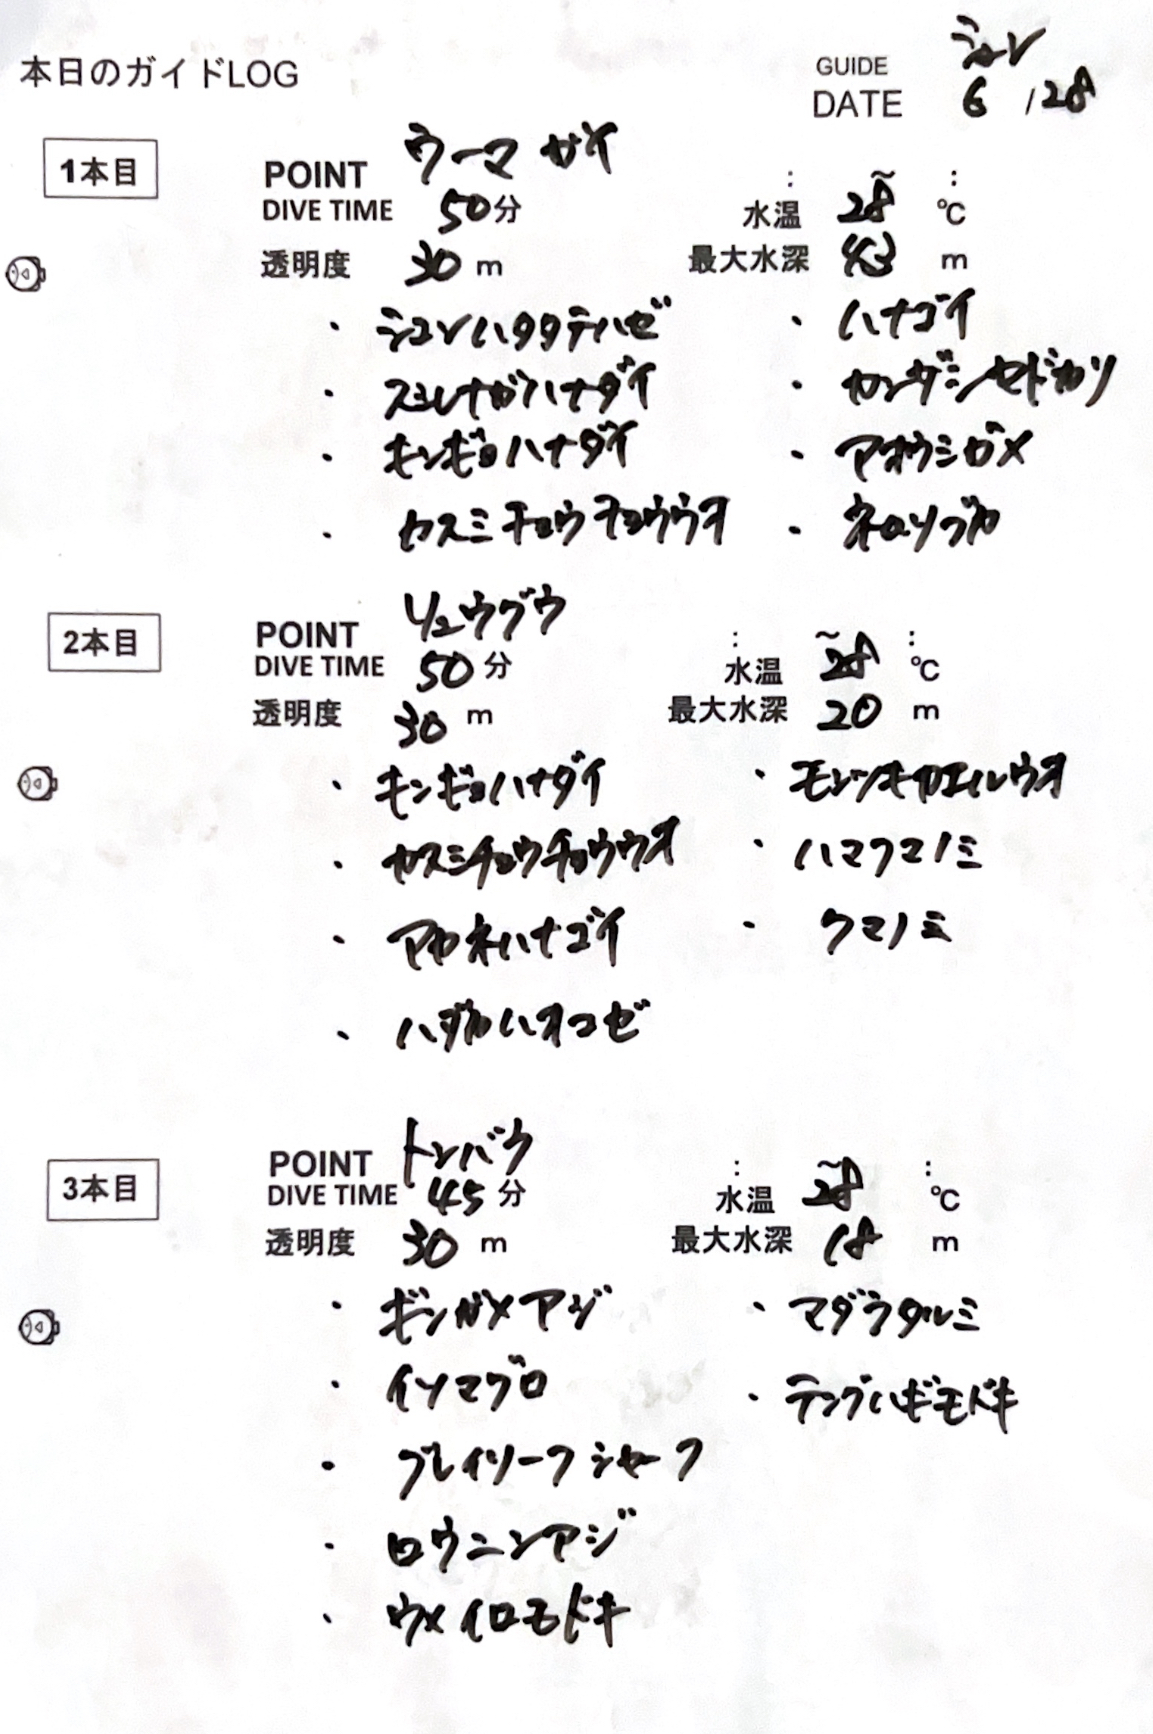 本日のガイドLOG
GUIDE シュン
DATE 6 / 28
1本目
POINT ウーマガイ
: ~ :
DIVE TIME 50分 水温 28 ℃
透明度 30 m 最大水深 43 m
・シュンハタタテハゼ ・ハナゴイ
・スミレナガハナダイ ・カンザシヤドカリ
・キンギョハナダイ ・アオウミガメ
・カスミチョウチョウウオ ・ネムリブカ
2本目
POINT リュウグウ
: ~ :
DIVE TIME 50分 水温 28 ℃
透明度 30 m 最大水深 20 m
・キンギョハナダイ ・モンツキカエルウオ
・カスミチョウチョウウオ ・ハマクマノミ
・アカネハナゴイ ・クマノミ
・ハダカハオコゼ
3本目
POINT トンバウ
: ~ :
DIVE TIME 45分 水温 28 ℃
透明度 30 m 最大水深 18 m
・ギンガメアジ ・マダラタルミ
・イソマグロ ・テングハギモドキ
・グレイリーフシャーク
・ロウニンアジ
・ウメイロモドキ